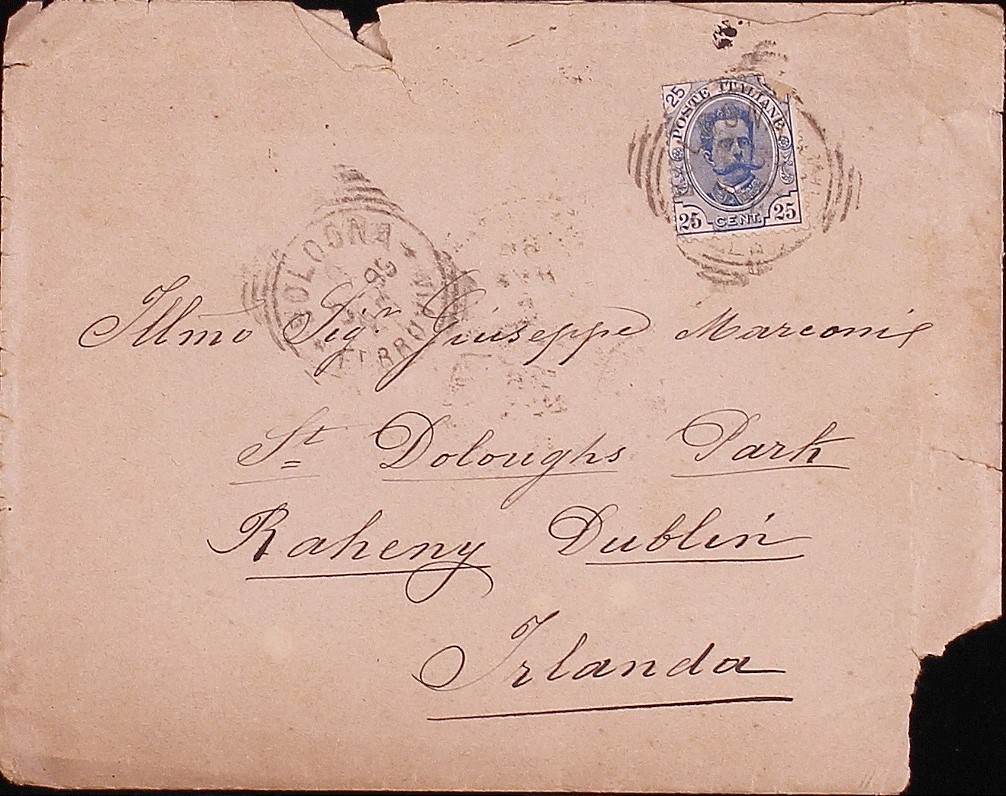 25
POSTE ITALIANE
25 CENT. 25
BOLOGNA
FERROVIA
Illmo Sigr Giuseppe Marconi
St Doloughs Park
Raheny Dublin
Irlanda